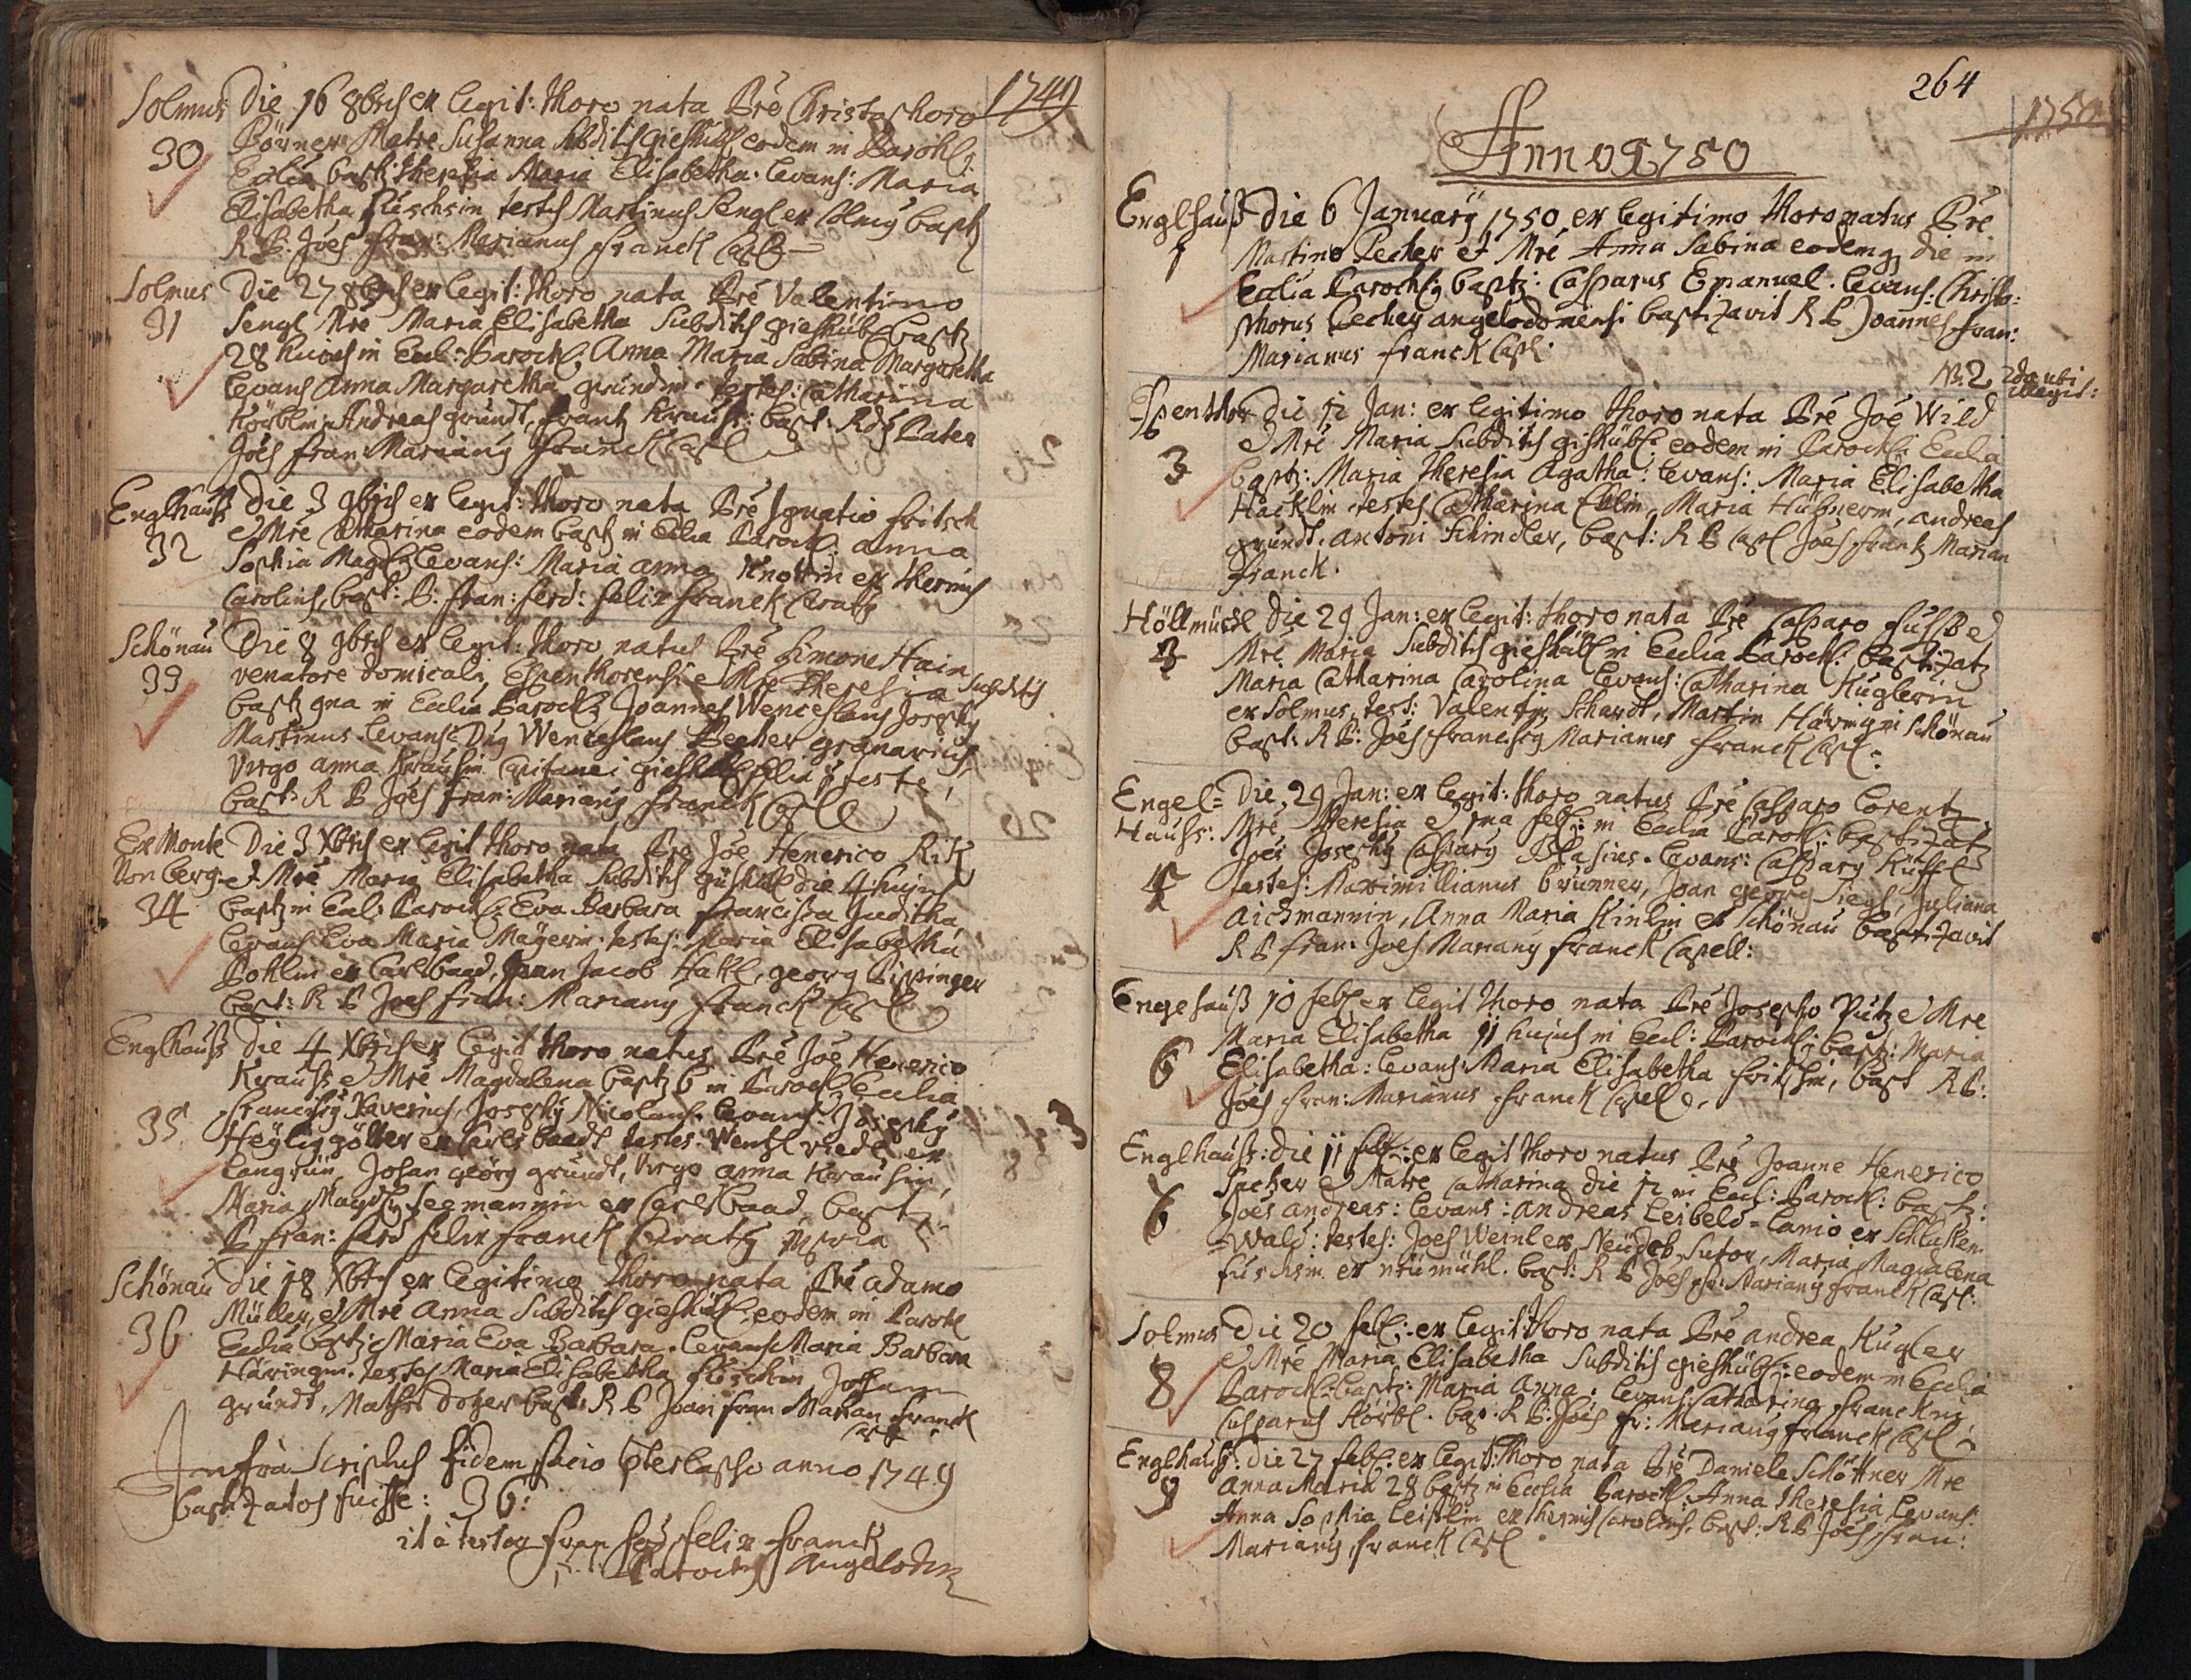 1749
Solmus Die 16 8bris ex legit: thoro nata Pre Christophoro
30 Börner Matre Susanna Subditis gieshübl eodem in Paroch:
Ecclia bapt: Theresia Maria Elisabetha. levans: Maria
Elisabetha testes Martinus Sengl ex Solmus bapt
R P: Joes Fran: Marianus Franck Capl
Solmus Die 27 8bris ex legit: thoro nata Pre Valentino
31 Sengl Mre Maria Elisabetha Subditis gieshübl bapt
28 huius in Eccl: Paroch: Anna Maria Sabina Margaretha
levans Anna Margaretha gründin testes: Catharina
Körblin, Andreas gründt, Frantz Krauss: bapt: Rds Pater
Joes Fran: Marianus Franck Capl
Englhauss Die 3 9bris ex legit: thoro nata Pre Ignatio Fritsch
32 et Mre Catharina eodem bapt in Ecclia Paroch: anna
Sophia Magd: levans: Maria anna Knottin ex thermis
Carolinis, bapt: P: Fran: Ferd: Felix Franck Curatus
Schönau Die 8 9bris ex legit: thoro natus Pre Simone Hain
33 venatore domicali Espenthorensi et Mre Theresia Subditis
bapt 9na in Ecclia Paroch: Joannes Wenceslaus Josephus
Martinus levans Dnus Wenceslaus Becher granarius,
Virgo anna Krausin Capitanei gieshübl filia teste,
bapt: R P Joes Fran: Marianus Franck Capl
Ex Monte Die 3 Xbris ex legit thoro nata Pre Joe Henerico Rik
Von berg et Mre Maria Elisabetha Subditis gishübl die 4 huius
34 bapt in Eccl: Paroch: Eva Barbara Francisca Juditha
levans Eva Maria Mayerin testes: Maria Elisabetha
Pohlin ex Carlsbaad, Joan Jacob Hakl, georg Pippinger
bapt: R P Joes Fran: Marianus Franck Capl
Englhauss Die 4 Xbris ex legit thoro natus Pre Joe Henerico
Krauss et Mre Magdalena bapt 6 in Paroch Ecclia
35 Franciscus Xaverius, Josephus Nicolaus. levans Josephus
Heyliggötter ex Carlsbaadt testes: Wentzl riedl ex
langrün, Johan georg gründt, Virgo anna Krausin,
Maria Magd: Seemannin ex Carlsbaad, bapt
P Fran: Ferd Felix Franck Curatus
Schönau Die 18 Xbris ex legitimo thoro nata Pre adamo
Müller, et Mre Anna Subditis gieshübl: eodem in Paroch
36 Ecclia bapt: Maria Eva Barbara. levans Maria Barbara
Häringin. testes Maria Elisabetha Johann
gründt, Mathes Dotzer bapt: R P Joan Fran Marian Franck
Capl
Infra Scriptus fidem facio anno 1749
baptizatos fuisse: 36:
ita testor Fran Ferd Felix Franck
Parochus Angelodom
264
1750
Anno 1750
Englhauss Die 6 January 1750 ex legitimo thoro natus Pre
1 Martino Pecher et Mre Anna Sabina eodemq die in
Ecclia Paroch: baptz: Casparus Emanuel. levans: Christo:
phorus Pecher angelodomensi baptizavit R P Joannes Fran:
Marianus Franck Capl.
NB. 2da ubi
Espenthor Die 12 Jan: ex legitimo thoro nata Pre Joe Wild
et Mre Maria Subditis gishübl: eodem in Paroch: Ecclia
3 baptz: Maria Theresia Agatha: levans: Maria Elisabetha
Hacklin testes Catharina Maria Hübnerin, andreas
gründt. antoni Schindler, bapt: R P Capl Joes Frantz Marian
Franck.
Höllmühl Die 29 Jan: ex legit: thoro nata Pre Casparo et
4 Mre Maria Subditis gieshübl in Ecclia Paroch: baptizat
Maria Catharina Carolina levans: Catharina Kuglerin
ex Solmus, test: Valentin Schardt, Martin Häring in Schönau
bapt: R P: Joes Franciscus Marianus Franck Capl:
Engel= Die 29 Jan: ex legit: thoro natus Pre Casparo Lorentz
Hauss: Mre Theresia et 1ma feb: in Ecclia Paroch: baptizat
Joes Josephus Casparus Blasius. levans: Casparus
5 testes: Maximillianus brunner, Joan georg Siegl, Juliana
Aichmannin, Anna Maria ex Schönau baptizavit
R P Fran: Joes Marianus Franck Capell:
Engehauß 10 feb: ex legit thoro nata Pre Josepho Putz et Mre
Maria Elisabetha 11 huius in Eccl: Paroch: baptz: Maria
6 Elisabetha: levans: Maria Elisabetha bapt R P:
Joes Fran: Marianus Franck Capell.
Englhauss: Die 11 feb: ex legit thoro natus Pre Joanne Henerico
Pecher et Matre Catharina die 12 in Eccl: Paroch: baptz:
Joes andreas: levans: andreas Leibeld= Lanio ex Schlaken
=wald: testes: Joes Weinl ex Neudeb, Sutor, Maria Magdalena
Fuschsin ex neümühl. bapt: R P Joes Fr: Marianus Franck Capl:
Solmus Die 20 feb: ex legit: thoro nata Pre andrea Kugler
et Mre Maria Elisabetha Subditis gieshübl: eodem in Ecclia
8 Paroch: baptz: Maria Anna. levans: Catharina Franckin,
Casparus Körbl. bap. R P: Joes Fr: Marianus Franck Capl
Englhauss: Die 27 feb: ex legit: thoro nata Pre Daniele Schöttner Mre
9 Anna Maria 28 baptz in Ecclia Paroch: Anna Theresia levans
Anna Sophia ex thermis Carolinis. bapt: R P Joes Fran:
Marianus Franck Capl